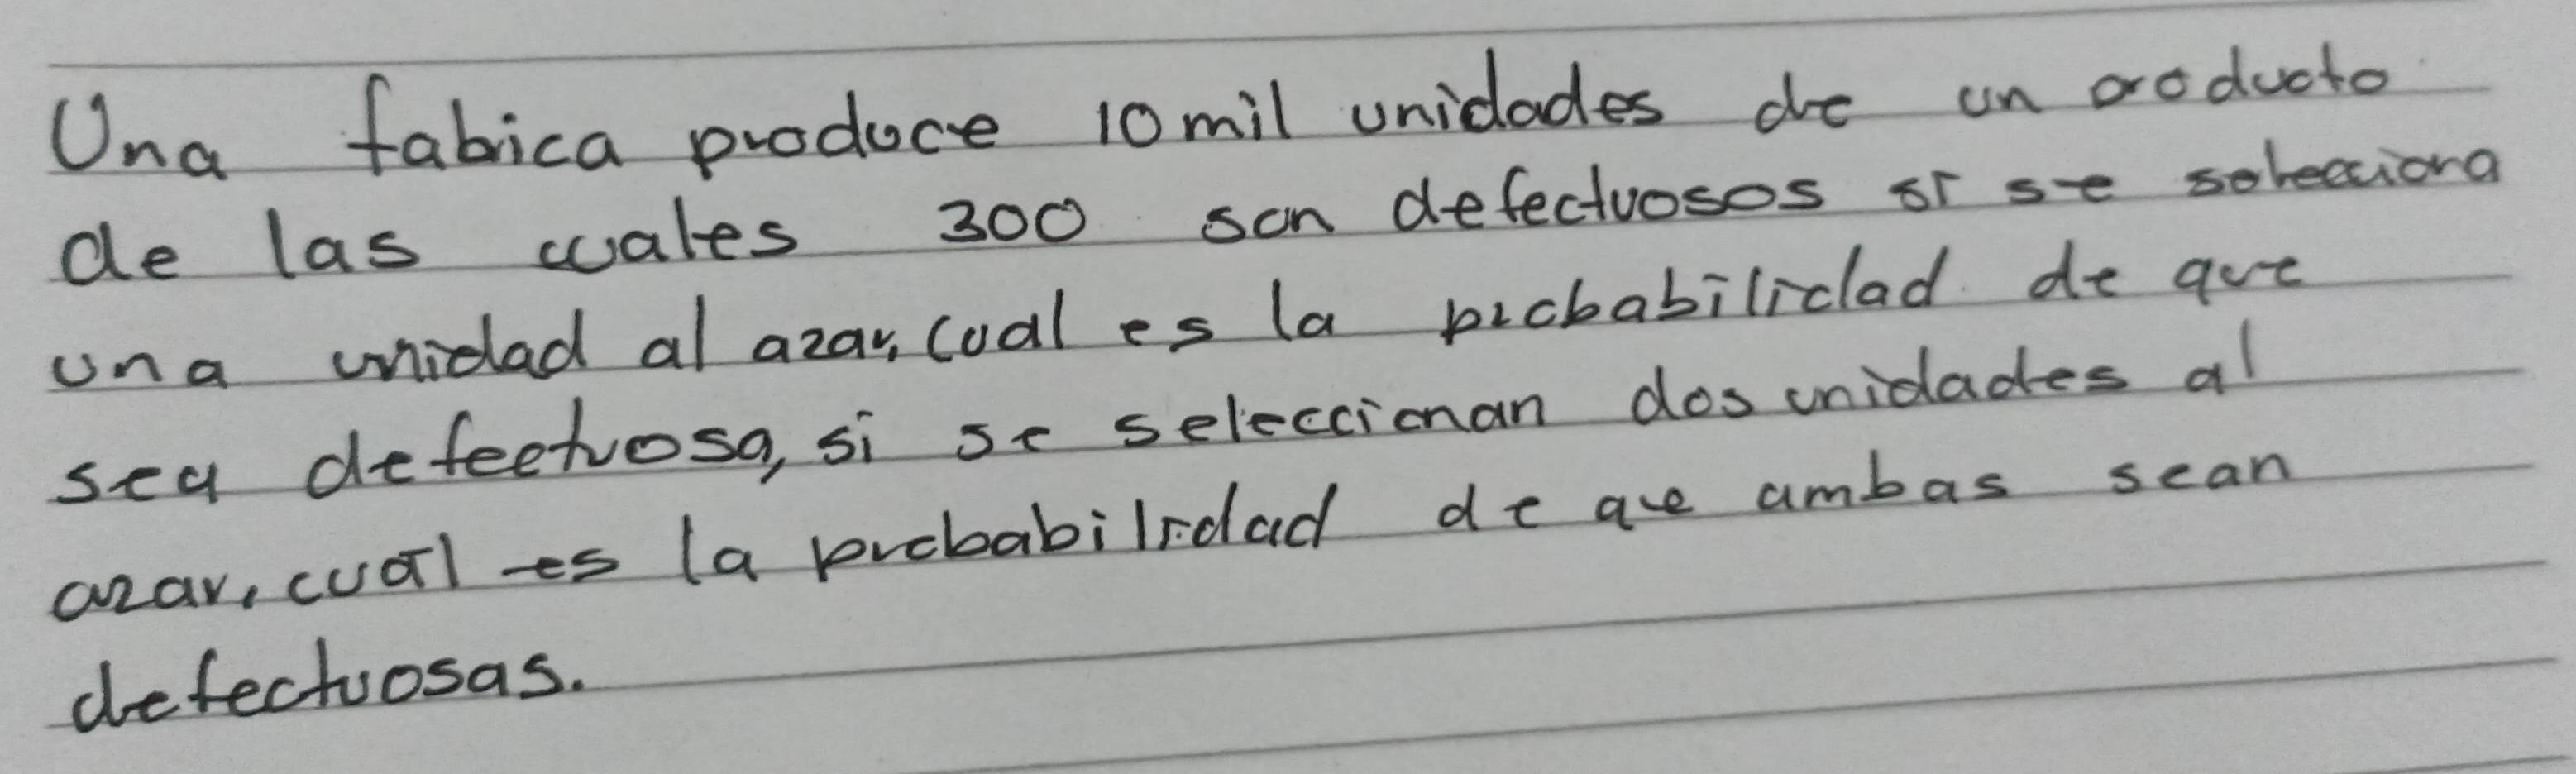 Una fabica produce 10 mil unidades de un producto
de las cuales 300 son defectuosos si se selecciona
una unidad al azar, cual es la probabilidad de que
sea defectuosa, si se seleccionan dos unidades al
azar, cuál es la probabilidad de que ambas sean
defectuosas.